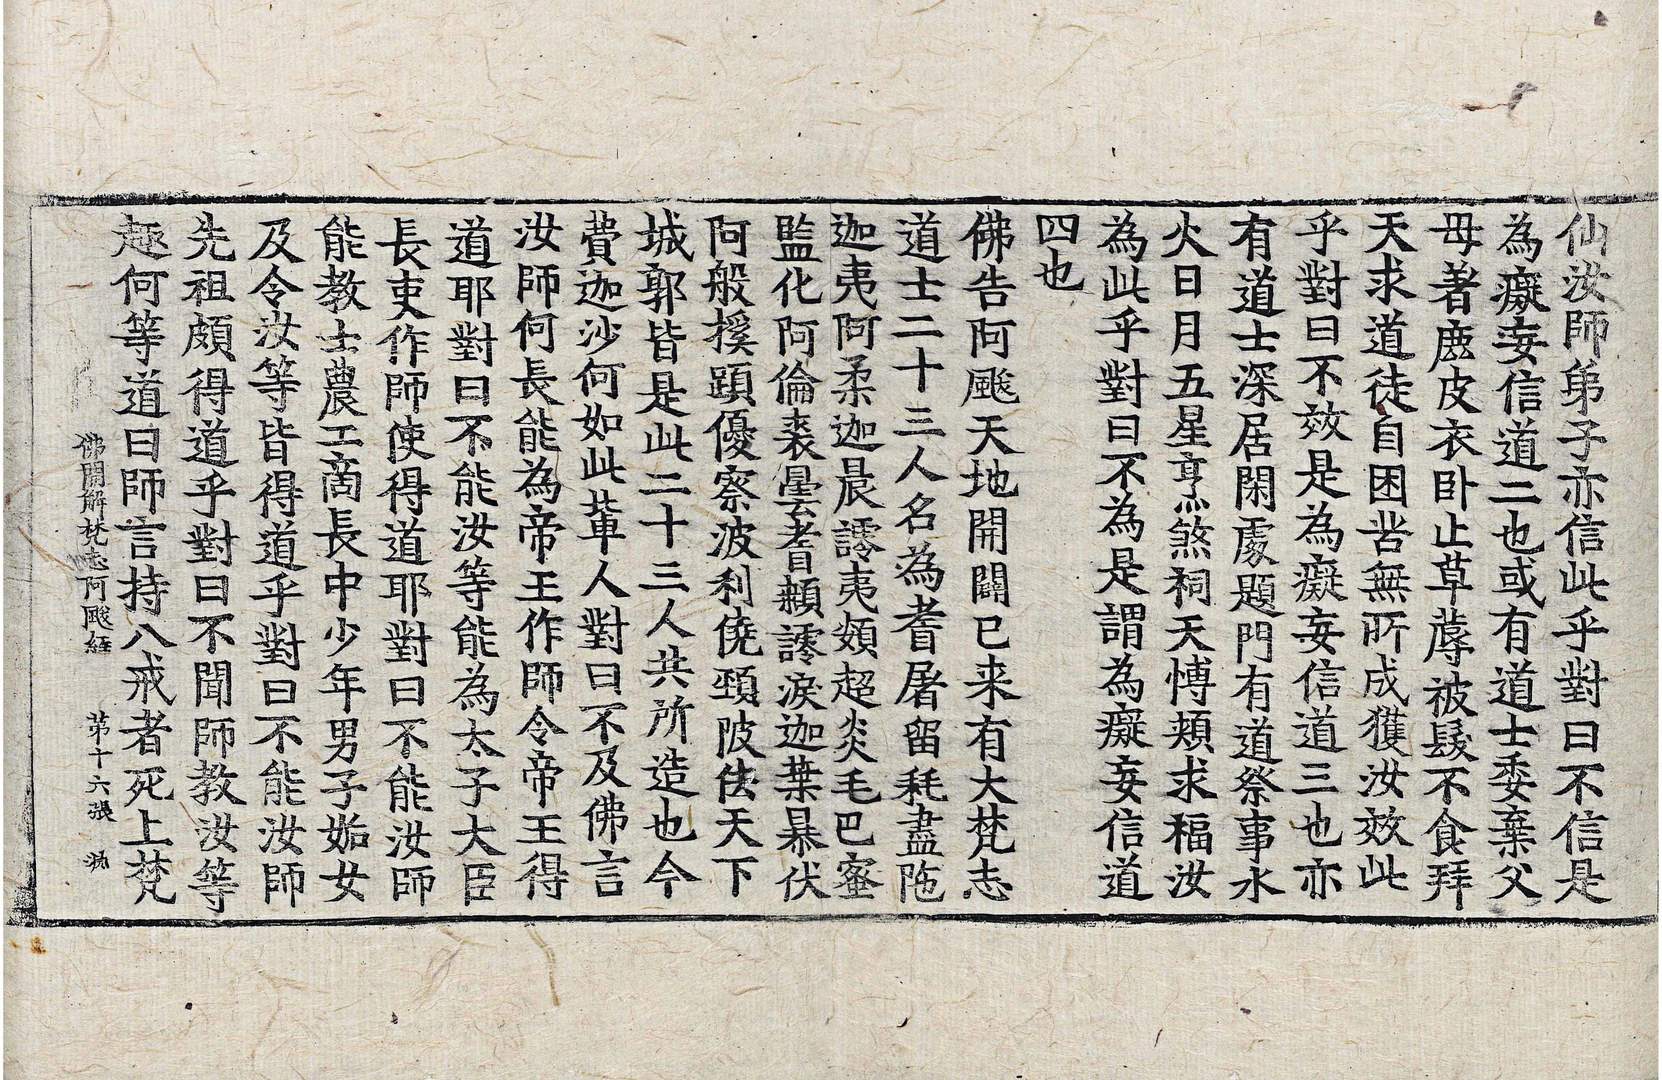 仙汝師弟子亦信此乎對曰不信是
為癡妄信道二也或有道士委棄父
母著鹿皮衣卧止草蓐被髮不食拜
天求道徒自困苦無所成獲汝效此
乎對曰不效是為癡妄信道三也亦
有道士深居閑處題門有道祭事水
火日月五星烹煞祠天愽頰求福汝
為此乎對曰不為是謂為癡妄信道
四也
佛告阿颰天地開闢已来有大梵志
道士二十三人名為耆屠留耗盡陁
迦夷阿柔迦晨謣夷頞超炎毛巴蜜
監化阿倫裘曇耆頼謣淚迦葉暴伏
阿般揬蹞優察波利僥頸陂佉天下
城郭皆是此二十三人共所造也今
費迦沙何如此輩人對曰不及佛言
汝師何長能為帝王作師令帝王得
道耶對曰不能汝等能為太子大臣
長吏作師使得道耶對曰不能汝師
能教士農工商長中少年男子姤女
及令汝等皆得道乎對曰不能汝師
先祖頗得道乎對曰不聞師教汝等
趣何等道曰師言持八戒者死上梵
佛開解梵志阿颰経 第十六張